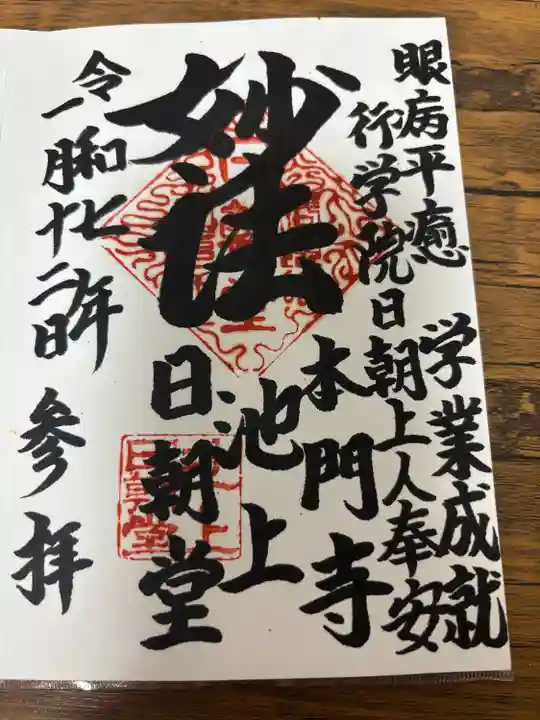 眼病平癒 学業成就
行学院日朝上人奉安
本門寺
池上
妙法
日朝堂
令和七年
一月十二日 参拝